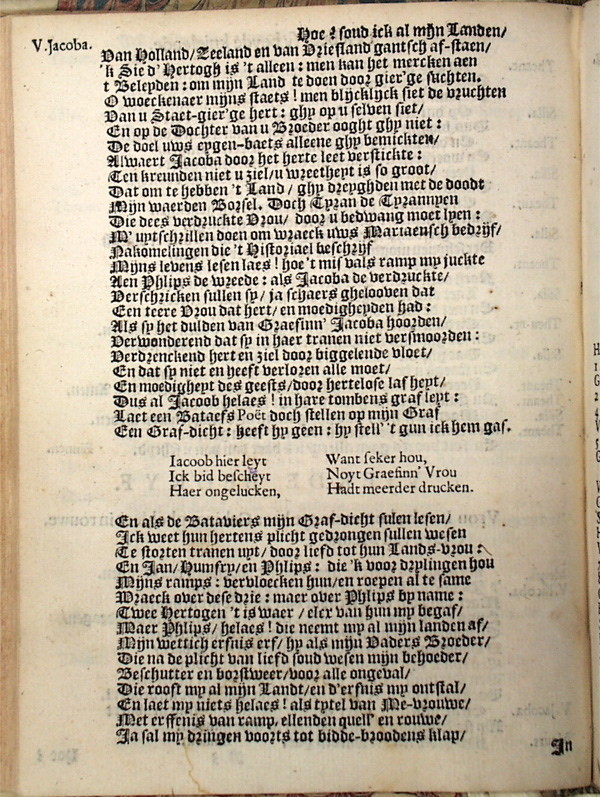 Hoe? soud ick al mijn Landen/
V. Jacoba. Van Holland/Zeeland en van Vriesland gantsch af-staen/
'k Sie d'Hertogh is 't alleen: men kan het mercken aen
't Beleyden: om mijn Land te doen door gier'ge suchten.
O woeckenaer mijns staets! men blijcklyck siet de vruchten
Van u Staet-gier'ge hert: ghy op u selven siet/
En op de Dochter van u Broeder ooght ghy niet:
De doel uws eygen-baets alleene ghy bemickten/
Alwaert Jacoba door het herte leet verstickte:
Ten kreunden niet u ziel/u wreetheyt is so groot/
Dat om te hebben 't Land/ ghy dreyghden met de doodt
Mijn waerden Borsel. Doch Tyran de Tyrannyen
Die dees verdruckte Vrou/ door u bedwang moet lyen:
M' uytschrillen doen om wraeck uws Mariaensch bedrijf/
Nakomelingen die 't Historiael beschrijf
Mijns levens lesen laes! hoe 't mis vals ramp my juckte
Aen Phlips de wreede: als Jacoba de verdruckte/
Verschricken sullen sy/ ja schaers ghelooven dat
Een teere Vrou dat hert/ en moedigheyden had:
Als sy het dulden van Graefinn' Jacoba hoorden/
Verwonderend dat sy in haer tranen niet versmoorden:
Verdrenckend hert en ziel door biggelende vloet/
En dat sy niet en heeft verloren alle moet/
En moedigheyt des geests/door hertelose laf heyt/
Dus al Jacoob helaes! in hare tombens graf leyt:
Laet een Bataefs Poët doch stellen op mijn Graf
Een Graf-dicht: heeft hy geen: hy stell' 't gun ick hem gaf.
Iacoob hier leyt
Ick bid bescheyt
Haer ongelucken,
Want seker hou,
Noyt Graefinn' Vrou
Hadt meerder drucken.
En als de Bataviers mijn Graf-dicht sulen lesen/
Ick weet hun hertens plicht gedrongen sullen wesen
Te storten tranen uyt/ door liefd tot hun Lands-vrou:
En Jan/Humfry/en Phlips: die 'k voor dryplingen hou
Mijns ramps: vervloecken hun/en roepen al te same
Wraeck over dese drie: maer over Phlips by name:
Twee Hertogen 't is waer/ elcx van hun my begaf/
Maer Phlips/ helaes! die neemt my al mijn landen af/
Mijn wettich erfnis erf/ hy als mijn Vaders Broeder/
Die na de plicht van liefd soud wesen mijn behoeder/
Beschutter en borstweer/voor alle ongeval/
Die rooft my al mijn Landt/en d'erfnis my ontstal/
En laet my niets helaes! als tytel van Me-vrouwe/
Met erffenis van ramp, ellenden quell' en rouwe/
Ja sal my dringen voorts tot bidde-broodens klap/
In